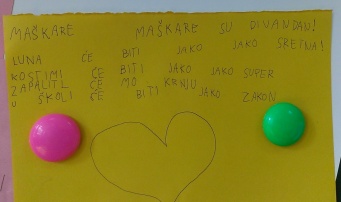 MAŠKARE MAŠKARE SU DIVANDAN!
LUNA ĆE BITI JAKO JAKO SRETNA!
KOSTIMI ĆE BITI JAKO JAKO SUPER
ZAPALITI ĆE MO KRNJU
U ŠKOLI ĆE BITI JAKO ZAKON